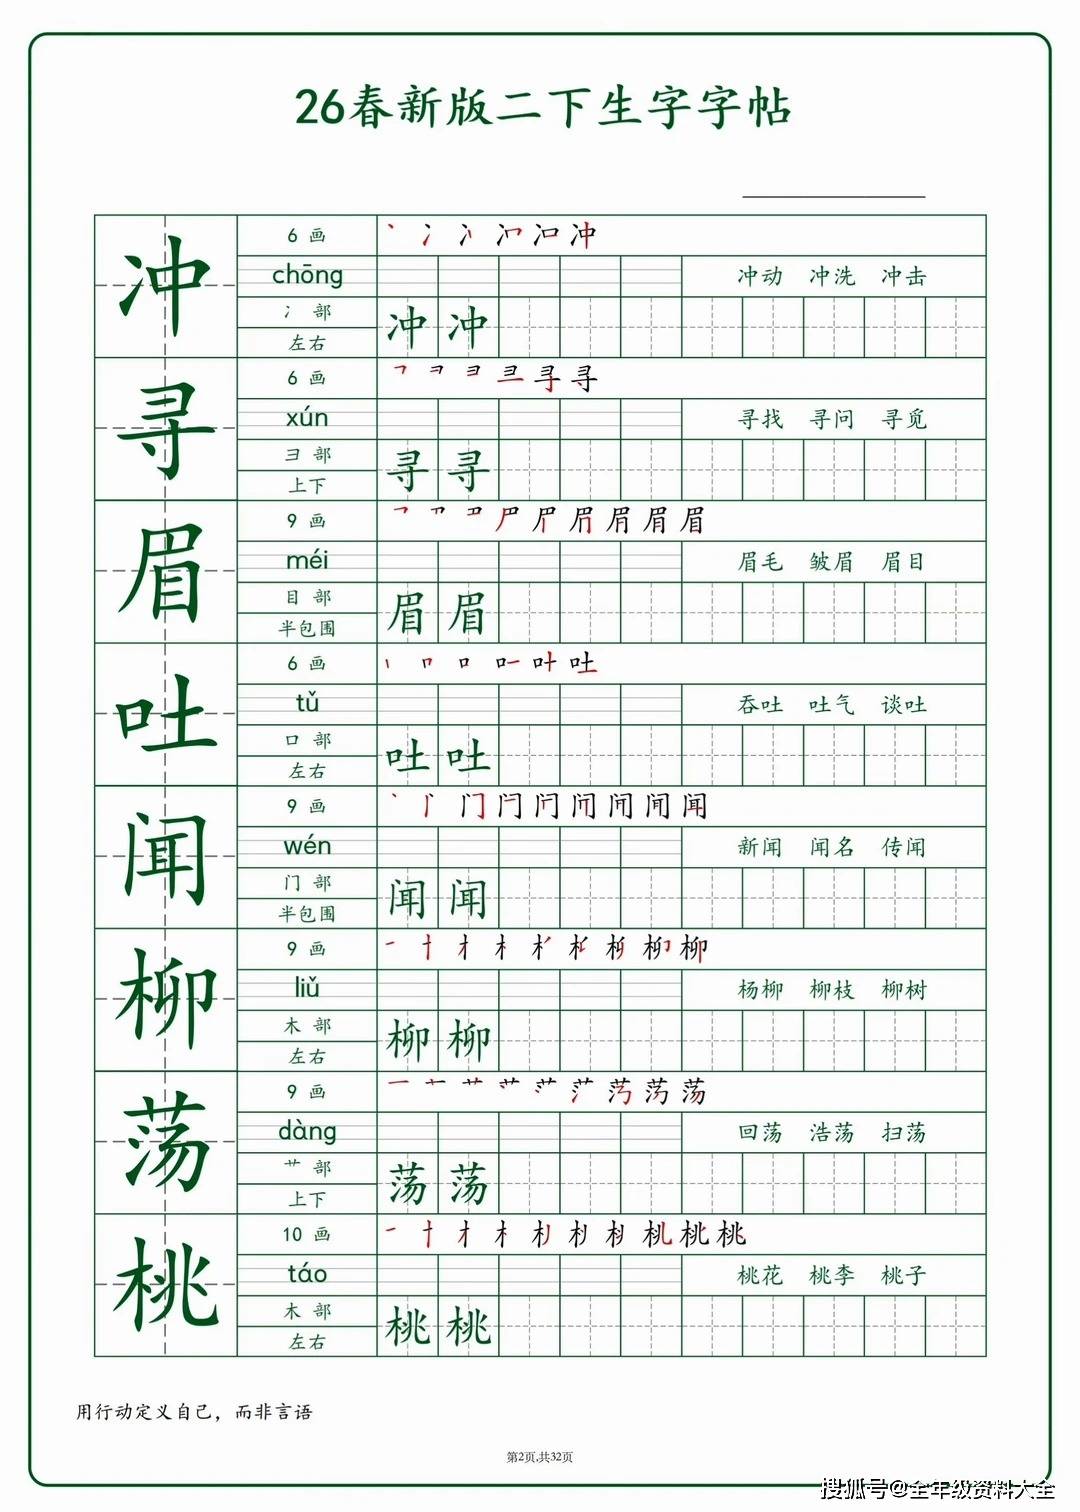 26春新版二下生字字帖
冲
6 画
chōng
冲动 冲洗 冲击
冫 部
左右
冲 冲
寻
6 画
xún
寻找 寻问 寻觅
彐 部
上下
寻 寻
眉
9 画
méi
眉毛 皱眉 眉目
目 部
半包围
眉 眉
吐
6 画
tǔ
吞吐 吐气 谈吐
口 部
左右
吐 吐
闻
9 画
wén
新闻 闻名 传闻
门 部
半包围
闻 闻
柳
9 画
liǔ
杨柳 柳枝 柳树
木 部
左右
柳 柳
荡
9 画
dàng
回荡 浩荡 扫荡
艹 部
上下
荡 荡
桃
10 画
táo
桃花 桃李 桃子
木 部
左右
桃 桃
用行动定义自己，而非言语
第2页,共32页
搜狐号@全年级资料大全